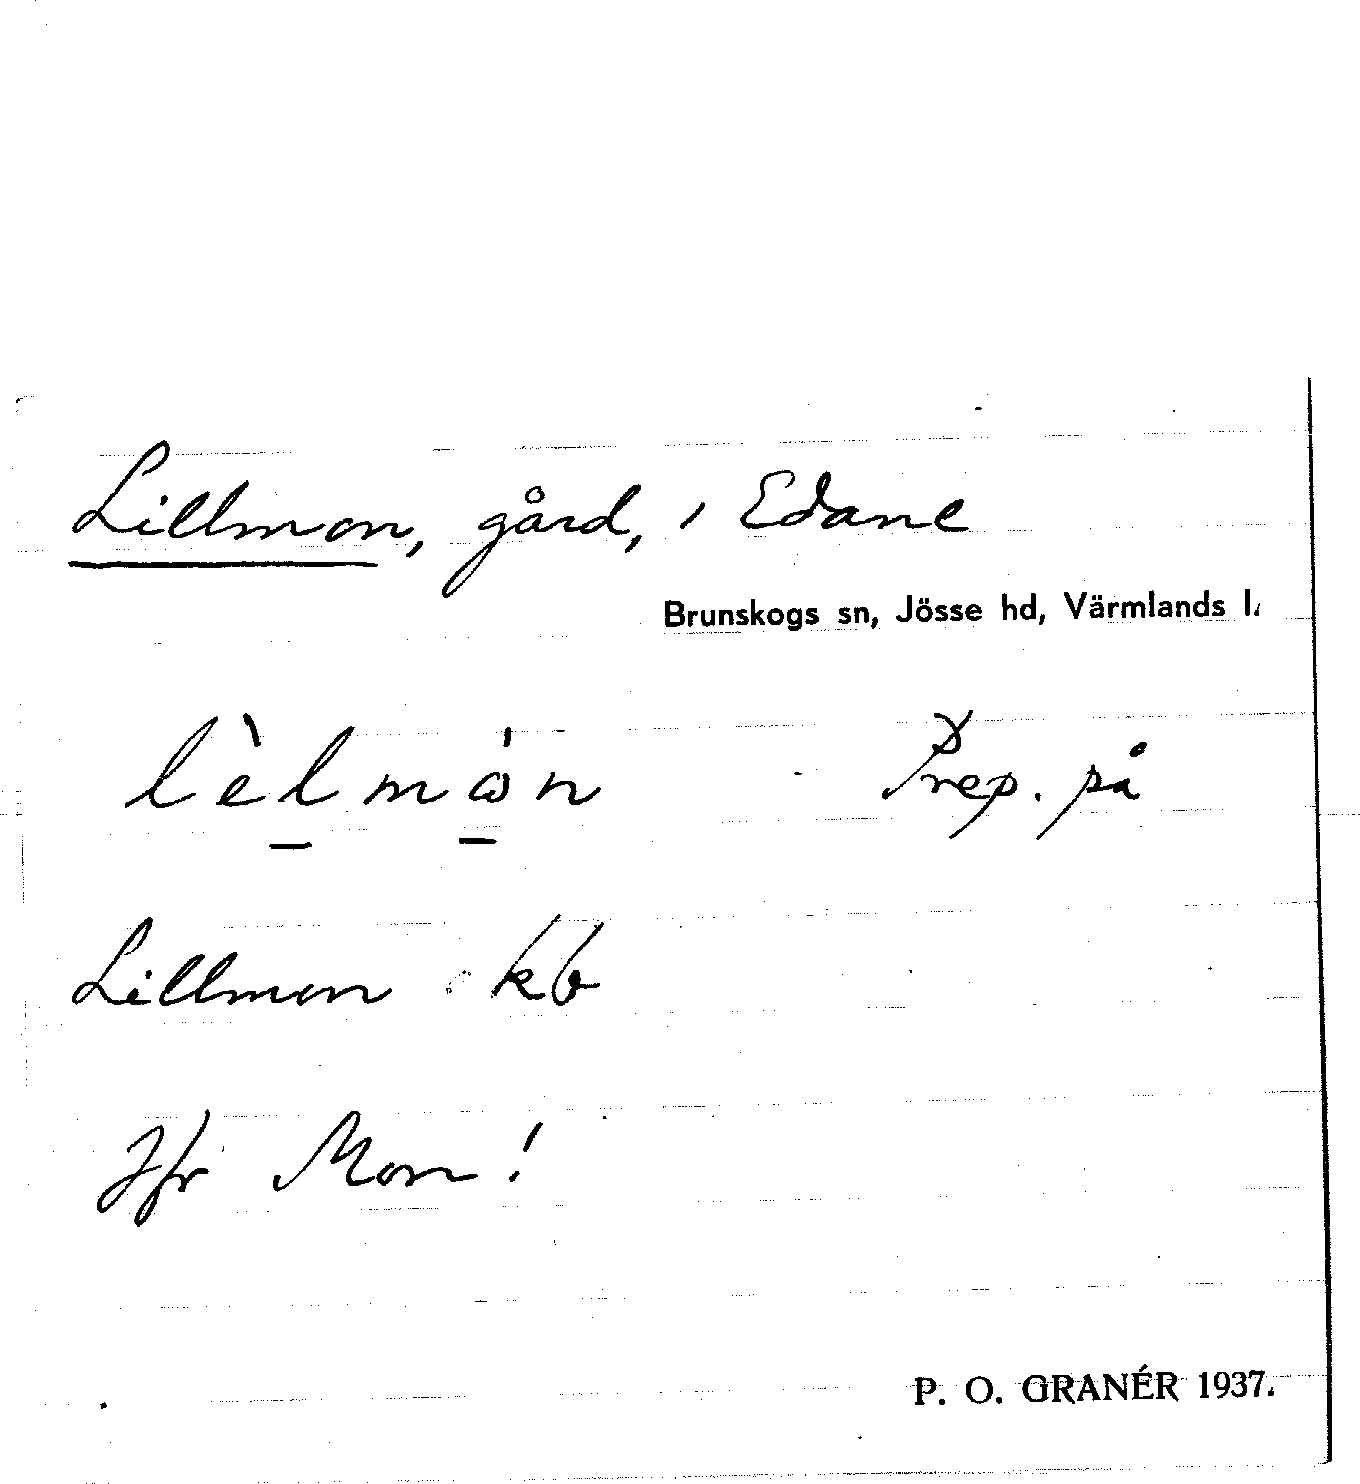 Lillmon, gård, i Edane
Brunskogs sn, Jösse hd, Värmlands l.
lèlmòn Prep. på
Lillmon kb
Jfr Mon!
P. O. GRANÉR 1937.